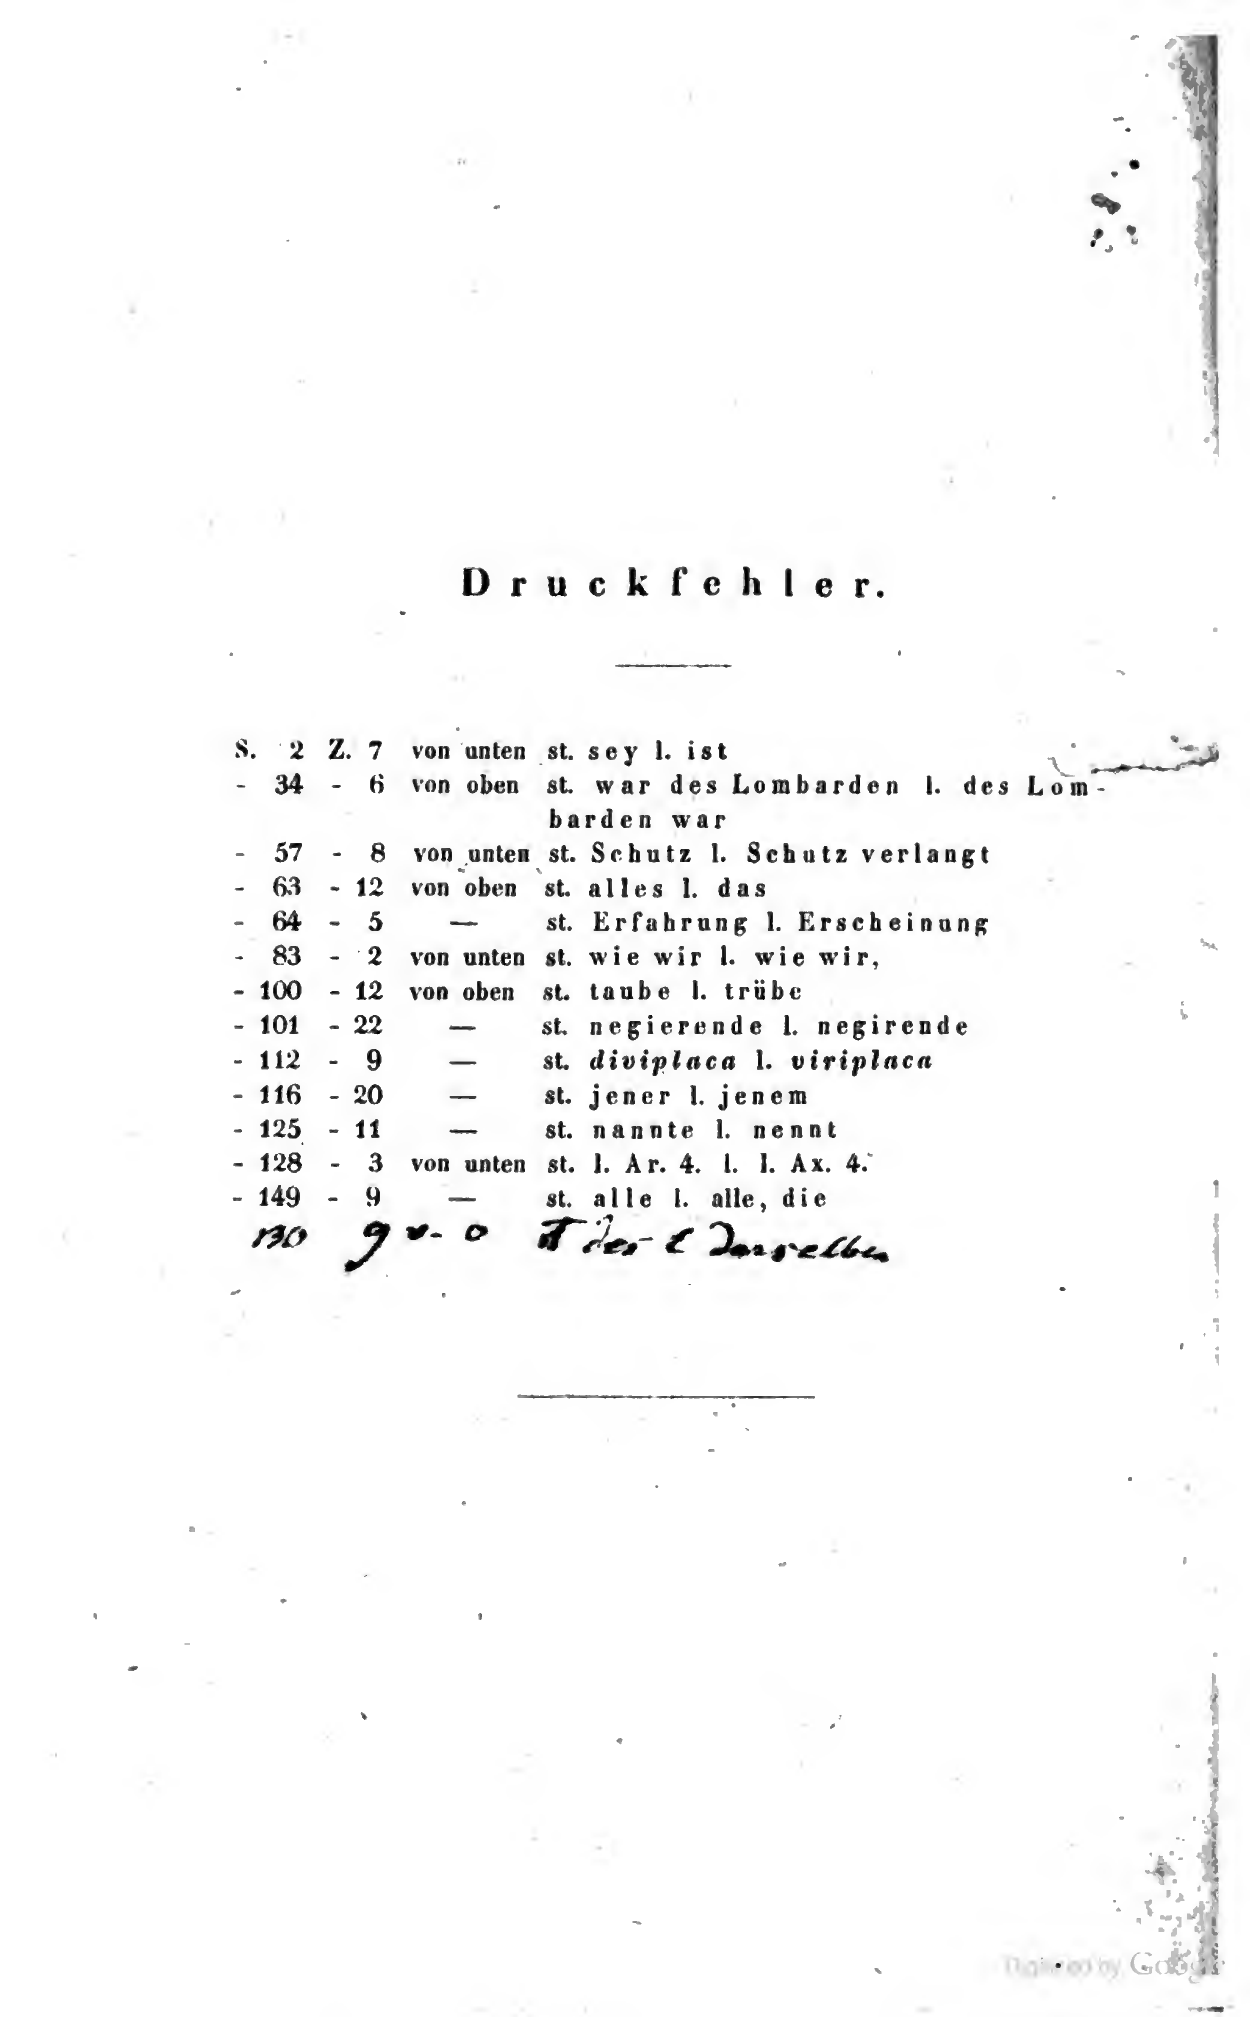 Druckfehler.
S. 2 Z. 7 von unten st. sey l. ist
- 34 - 6 von oben st. war des Lombarden l. des Lom-
barden war
- 57 - 8 von unten st. Schutz l. Schutz verlangt
- 63 - 12 von oben st. alles l. das
- 64 - 5 — st. Erfahrung l. Erscheinung
- 83 - 2 von unten st. wie wir l. wie wir,
- 100 - 12 von oben st. taube l. trübe
- 101 - 22 — st. negierende l. negirende
- 112 - 9 — st. diviplaca l. viriplaca
- 116 - 20 — st. jener l. jenem
- 125 - 11 — st. nannte l. nennt
- 128 - 3 von unten st. l. Ar. 4. l. l. Ax. 4.
- 149 - 9 — st. alle l. alle, die
9 v. o st der l derselben
Digitized by Google